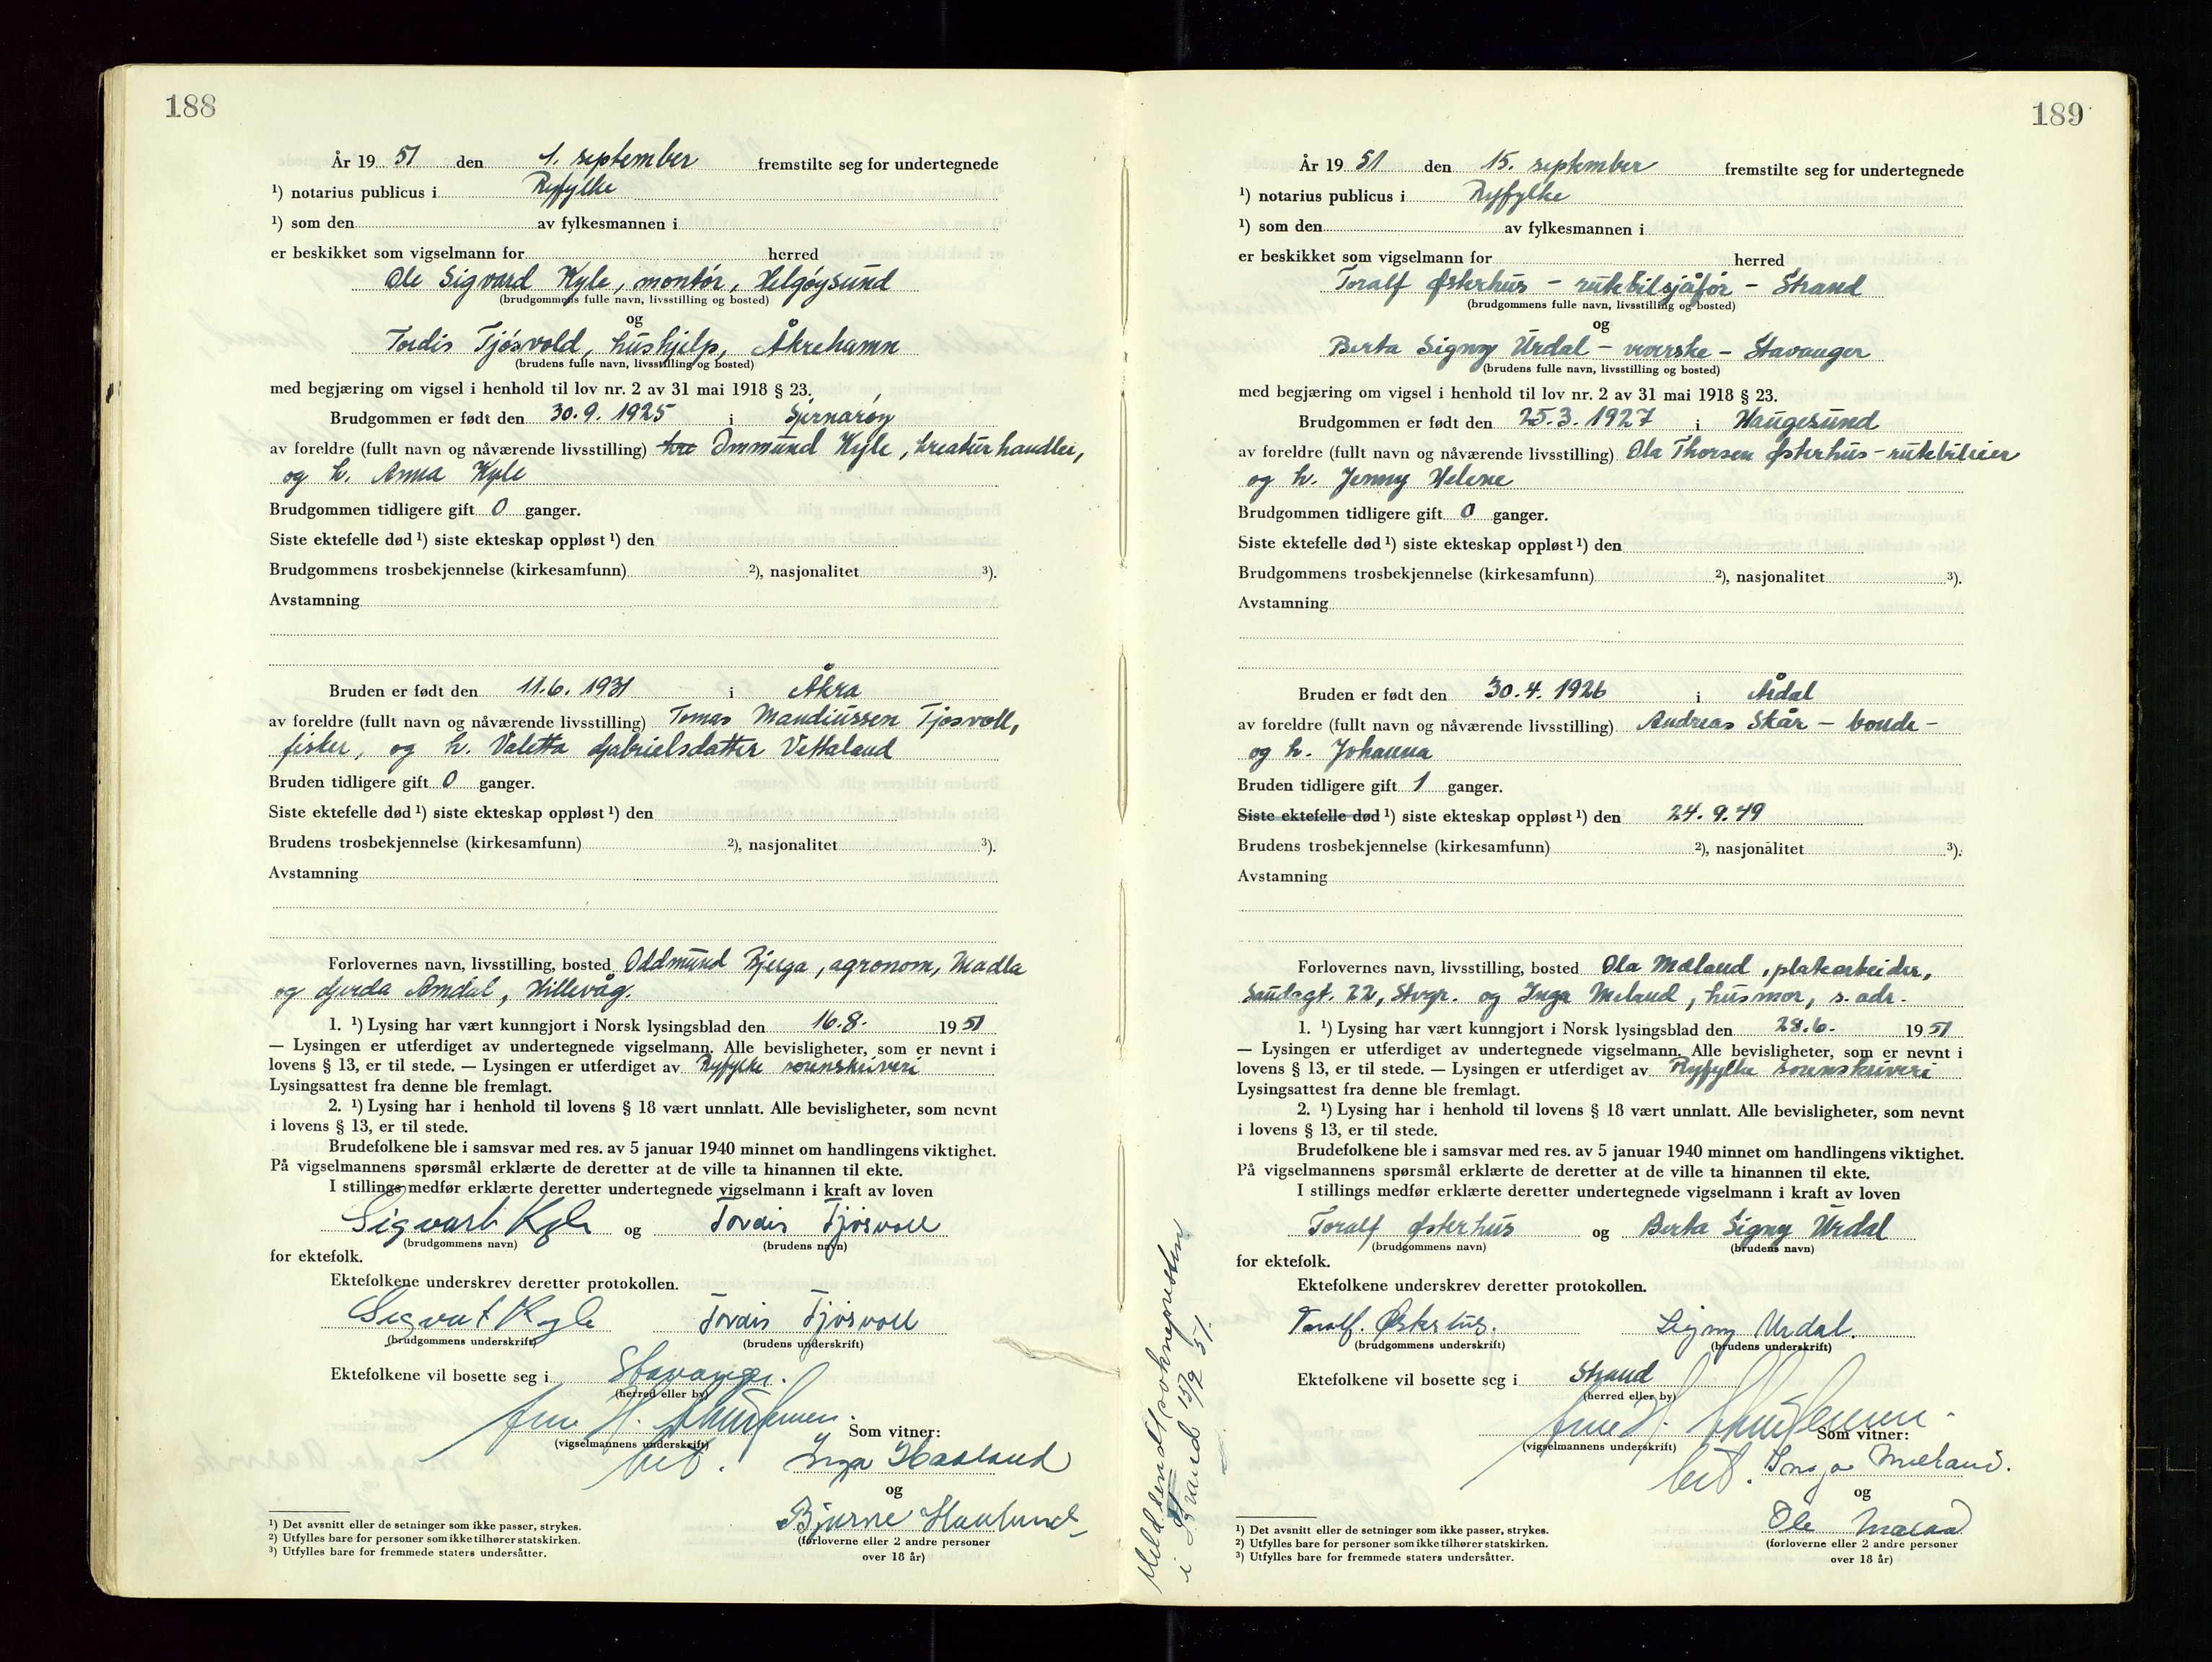 188
År 19 51 den 1. september fremstilte seg for undertegnede
¹) notarius publicus i Ryfylke
¹) som den av fylkesmannen i
er beskikket som vigselmann for herred
Ole Sigvard Kyle, montør, Helgøysund
(brudgommens fulle navn, livsstilling og bosted)
og
Tordis Tjøsvold, hushjelp, Åkrehamn
(brudens fulle navn, livsstilling og bosted)
med begjæring om vigsel i henhold til lov nr. 2 av 31 mai 1918 § 23.
Brudgommen er født den 30.9.1925 i Sjernarøy
av foreldre (fullt navn og nåværende livsstilling) Ommund Kyle, kreaturhandler,
og h. Anna Kyle
Brudgommen tidligere gift 0 ganger.
Siste ektefelle død ¹) siste ekteskap oppløst ¹) den
Brudgommens trosbekjennelse (kirkesamfunn) ²), nasjonalitet ³).
Avstamning
Bruden er født den 11.6.1931 i Åkra
av foreldre (fullt navn og nåværende livsstilling) Tomas Mandiussen Tjøsvoll,
fisker, og h. Valetta Gabrielsdatter Vettaland
Bruden tidligere gift 0 ganger.
Siste ektefelle død ¹) siste ekteskap oppløst ¹) den
Brudens trosbekjennelse (kirkesamfunn) ²), nasjonalitet ³).
Avstamning
Forlovernes navn, livsstilling, bosted Oddmund Bjerga, agronom, Madla
og Gjerda Amdal, Hillevåg.
1. ¹) Lysing har vært kunngjort i Norsk lysingsblad den 16.8. 19 51
— Lysingen er utferdiget av undertegnede vigselmann. Alle bevisligheter, som er nevnt i
lovens § 13, er til stede. — Lysingen er utferdiget av Ryfylke sorenskriveri
Lysingsattest fra denne ble fremlagt.
2. ¹) Lysing har i henhold til lovens § 18 vært unnlatt. Alle bevisligheter, som nevnt
i lovens § 13, er til stede.
Brudefolkene ble i samsvar med res. av 5 januar 1940 minnet om handlingens viktighet.
På vigselmannens spørsmål erklærte de deretter at de ville ta hinannen til ekte.
I stillings medfør erklærte deretter undertegnede vigselmann i kraft av loven
Sigvart Kyle og Tordis Tjøsvoll
(brudgommens navn) (brudens navn)
for ektefolk.
Ektefolkene underskrev deretter protokollen.
Sigvart Kyle Tordis Tjøsvoll
(brudgommens underskrift) (brudens underskrift)
Ektefolkene vil bosette seg i Stavanger.
(herred eller by)
(vigselmannens underskrift) Som vitner:
Inga Haaland
og
Bjarne Haaland
(forloverne eller 2 andre personer
over 18 år)
¹) Det avsnitt eller de setninger som ikke passer, strykes.
²) Utfylles bare for personer som ikke tilhører statskirken.
³) Utfylles bare for fremmede staters undersåtter.
189
År 19 51 den 15. september fremstilte seg for undertegnede
¹) notarius publicus i Ryfylke
¹) som den av fylkesmannen i
er beskikket som vigselmann for herred
Toralf Østerhus - rutebilsjåfør - Strand
(brudgommens fulle navn, livsstilling og bosted)
og
Berta Signy Urdal - veverske - Stavanger
(brudens fulle navn, livsstilling og bosted)
med begjæring om vigsel i henhold til lov nr. 2 av 31 mai 1918 § 23.
Brudgommen er født den 25.3.1927 i Haugesund
av foreldre (fullt navn og nåværende livsstilling) Ola Thorsen Østerhus - rutebileier
og h. Jenny Helene
Brudgommen tidligere gift 0 ganger.
Siste ektefelle død ¹) siste ekteskap oppløst ¹) den
Brudgommens trosbekjennelse (kirkesamfunn) ²), nasjonalitet ³).
Avstamning
Bruden er født den 30.4.1926 i Årdal
av foreldre (fullt navn og nåværende livsstilling) Andreas Skår - bonde -
og h. Johanna
Bruden tidligere gift 1 ganger.
Siste ektefelle død ¹) siste ekteskap oppløst ¹) den 24.9.49
Brudens trosbekjennelse (kirkesamfunn) ²), nasjonalitet ³).
Avstamning
Forlovernes navn, livsstilling, bosted Ola Mæland, platearbeider,
Saudagt. 22, Stvgr. og Inga Meland, husmor, s. adr.
1. ¹) Lysing har vært kunngjort i Norsk lysingsblad den 28.6. 19 51
— Lysingen er utferdiget av undertegnede vigselmann. Alle bevisligheter, som er nevnt i
lovens § 13, er til stede. — Lysingen er utferdiget av Ryfylke sorenskriveri
Lysingsattest fra denne ble fremlagt.
2. ¹) Lysing har i henhold til lovens § 18 vært unnlatt. Alle bevisligheter, som nevnt
i lovens § 13, er til stede.
Brudefolkene ble i samsvar med res. av 5 januar 1940 minnet om handlingens viktighet.
På vigselmannens spørsmål erklærte de deretter at de ville ta hinannen til ekte.
I stillings medfør erklærte deretter undertegnede vigselmann i kraft av loven
Toralf Østerhus og Berta Signy Urdal
(brudgommens navn) (brudens navn)
for ektefolk.
Ektefolkene underskrev deretter protokollen.
Toralf Østerhus. Signy Urdal.
(brudgommens underskrift) (brudens underskrift)
Ektefolkene vil bosette seg i Strand
(herred eller by)
(vigselmannens underskrift) Som vitner:
Inga Mæland.
og
Ole Mæland
(forloverne eller 2 andre personer
over 18 år)
¹) Det avsnitt eller de setninger som ikke passer, strykes.
²) Utfylles bare for personer som ikke tilhører statskirken.
³) Utfylles bare for fremmede staters undersåtter.
Meld. sendt soknepresten
i Strand 15/9 51.